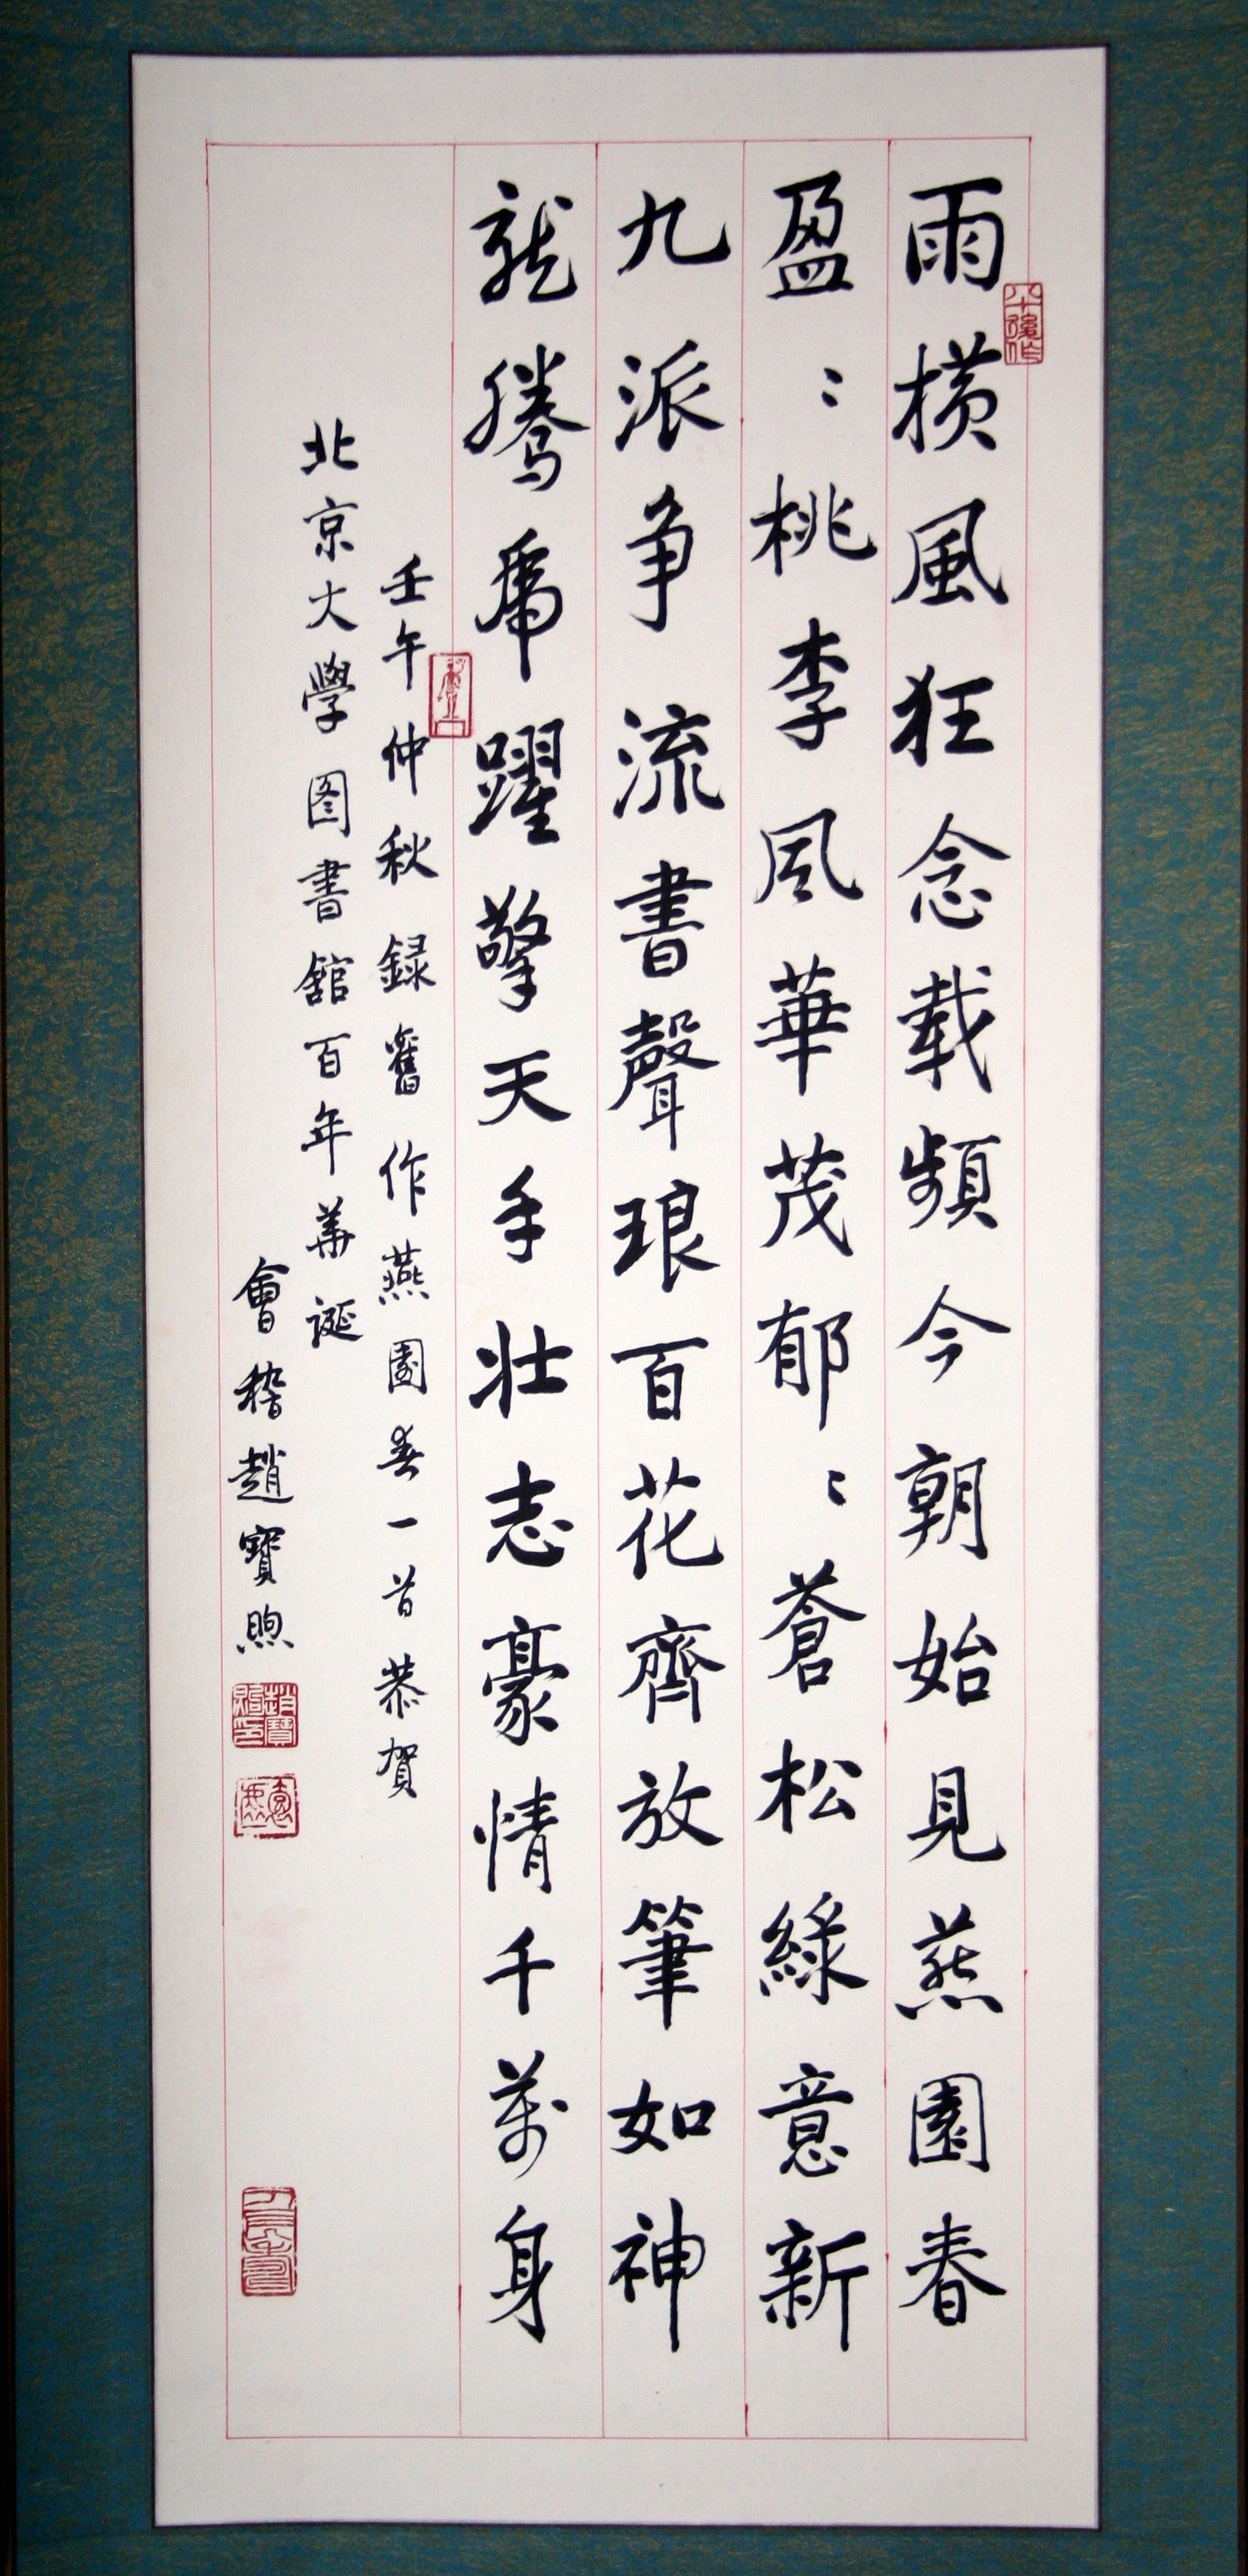 雨橫風狂念載頻今朝始見燕園春
盈〻桃李風華茂郁〻蒼松綠意新
九派争流書聲琅百花齊放筆如神
龍騰虎躍擎天手壮志豪情千萬身
壬午仲秋録舊作燕園春一首恭賀
北京大學图書館百年華誕
會稽趙寶煦
趙寶煦印